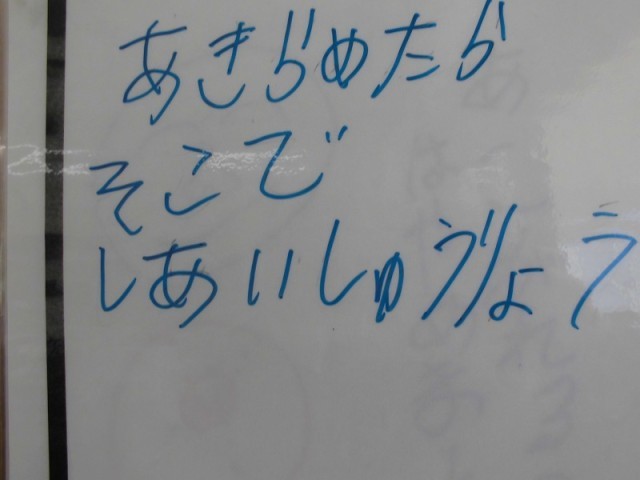 あきらめたら
そこで
しあいしゅうりょう